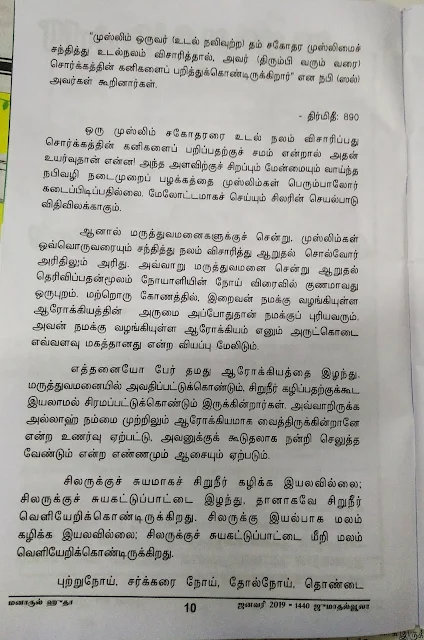 "முஸ்லிம் ஒருவர் (உடல் நலிவுற்ற) தம் சகோதர முஸ்லிமைச்
சந்தித்து உடல்நலம் விசாரித்தால், அவர் (திரும்பி வரும் வரை)
சொர்க்கத்தின் கனிகளைப் பறித்துக்கொண்டிருக்கிறார்" என நபி (ஸல்)
அவர்கள் கூறினார்கள்.
- திர்மிதீ: 890
ஒரு முஸ்லிம் சகோதரரை உடல் நலம் விசாரிப்பது
சொர்க்கத்தின் கனிகளைப் பறிப்பதற்குச் சமம் என்றால் அதன்
உயர்வுதான் என்ன! அந்த அளவிற்குச் சிறப்பும் மேன்மையும் வாய்ந்த
நபிவழி நடைமுறைப் பழக்கத்தை முஸ்லிம்கள் பெரும்பாலோர்
கடைப்பிடிப்பதில்லை. மேலோட்டமாகச் செய்யும் சிலரின் செயல்பாடு
விதிவிலக்காகும்.
ஆனால் மருத்துவமனைகளுக்குச் சென்று, முஸ்லிம்கள்
ஒவ்வொருவரையும் சந்தித்து நலம் விசாரித்து ஆறுதல் சொல்வோர்
அரிதிலும் அரிது. அவ்வாறு மருத்துவமனை சென்று ஆறுதல்
தெரிவிப்பதன்மூலம் நோயாளியின் நோய் விரைவில் குணமாவது
ஒருபுறம். மற்றொரு கோணத்தில், இறைவன் நமக்கு வழங்கியுள்ள
ஆரோக்கியத்தின் அருமை அப்போதுதான் நமக்குப் புரியவரும்.
அவன் நமக்கு வழங்கியுள்ள ஆரோக்கியம் எனும் அருட்கொடை
எவ்வளவு மகத்தானது என்ற வியப்பு மேலிடும்.
எத்தனையோ பேர் தமது ஆரோக்கியத்தை இழந்து,
மருத்துவமனையில் அவதிப்பட்டுக்கொண்டும், சிறுநீர் கழிப்பதற்குக்கூட
இயலாமல் சிரமப்பட்டுக்கொண்டும் இருக்கின்றார்கள். அவ்வாறிருக்க
அல்லாஹ் நம்மை முற்றிலும் ஆரோக்கியமாக வைத்திருக்கின்றானே
என்ற உணர்வு ஏற்பட்டு, அவனுக்குக் கூடுதலாக நன்றி செலுத்த
வேண்டும் என்ற எண்ணமும் ஆசையும் ஏற்படும்.
சிலருக்குச் சுயமாகச் சிறுநீர் கழிக்க இயலவில்லை;
சிலருக்குச் சுயகட்டுப்பாட்டை இழந்து, தானாகவே சிறுநீர்
வெளியேறிக்கொண்டிருக்கிறது. சிலருக்கு இயல்பாக மலம்
கழிக்க இயலவில்லை; சிலருக்குச் சுயகட்டுப்பாட்டை மீறி மலம்
வெளியேறிக்கொண்டிருக்கிறது.
புற்றுநோய், சர்க்கரை நோய், தோல்நோய், தொண்டை
மனாருல் ஹுதா 10 ஜனவரி 2019 • 1440 ஜுமாதல்ஊலா